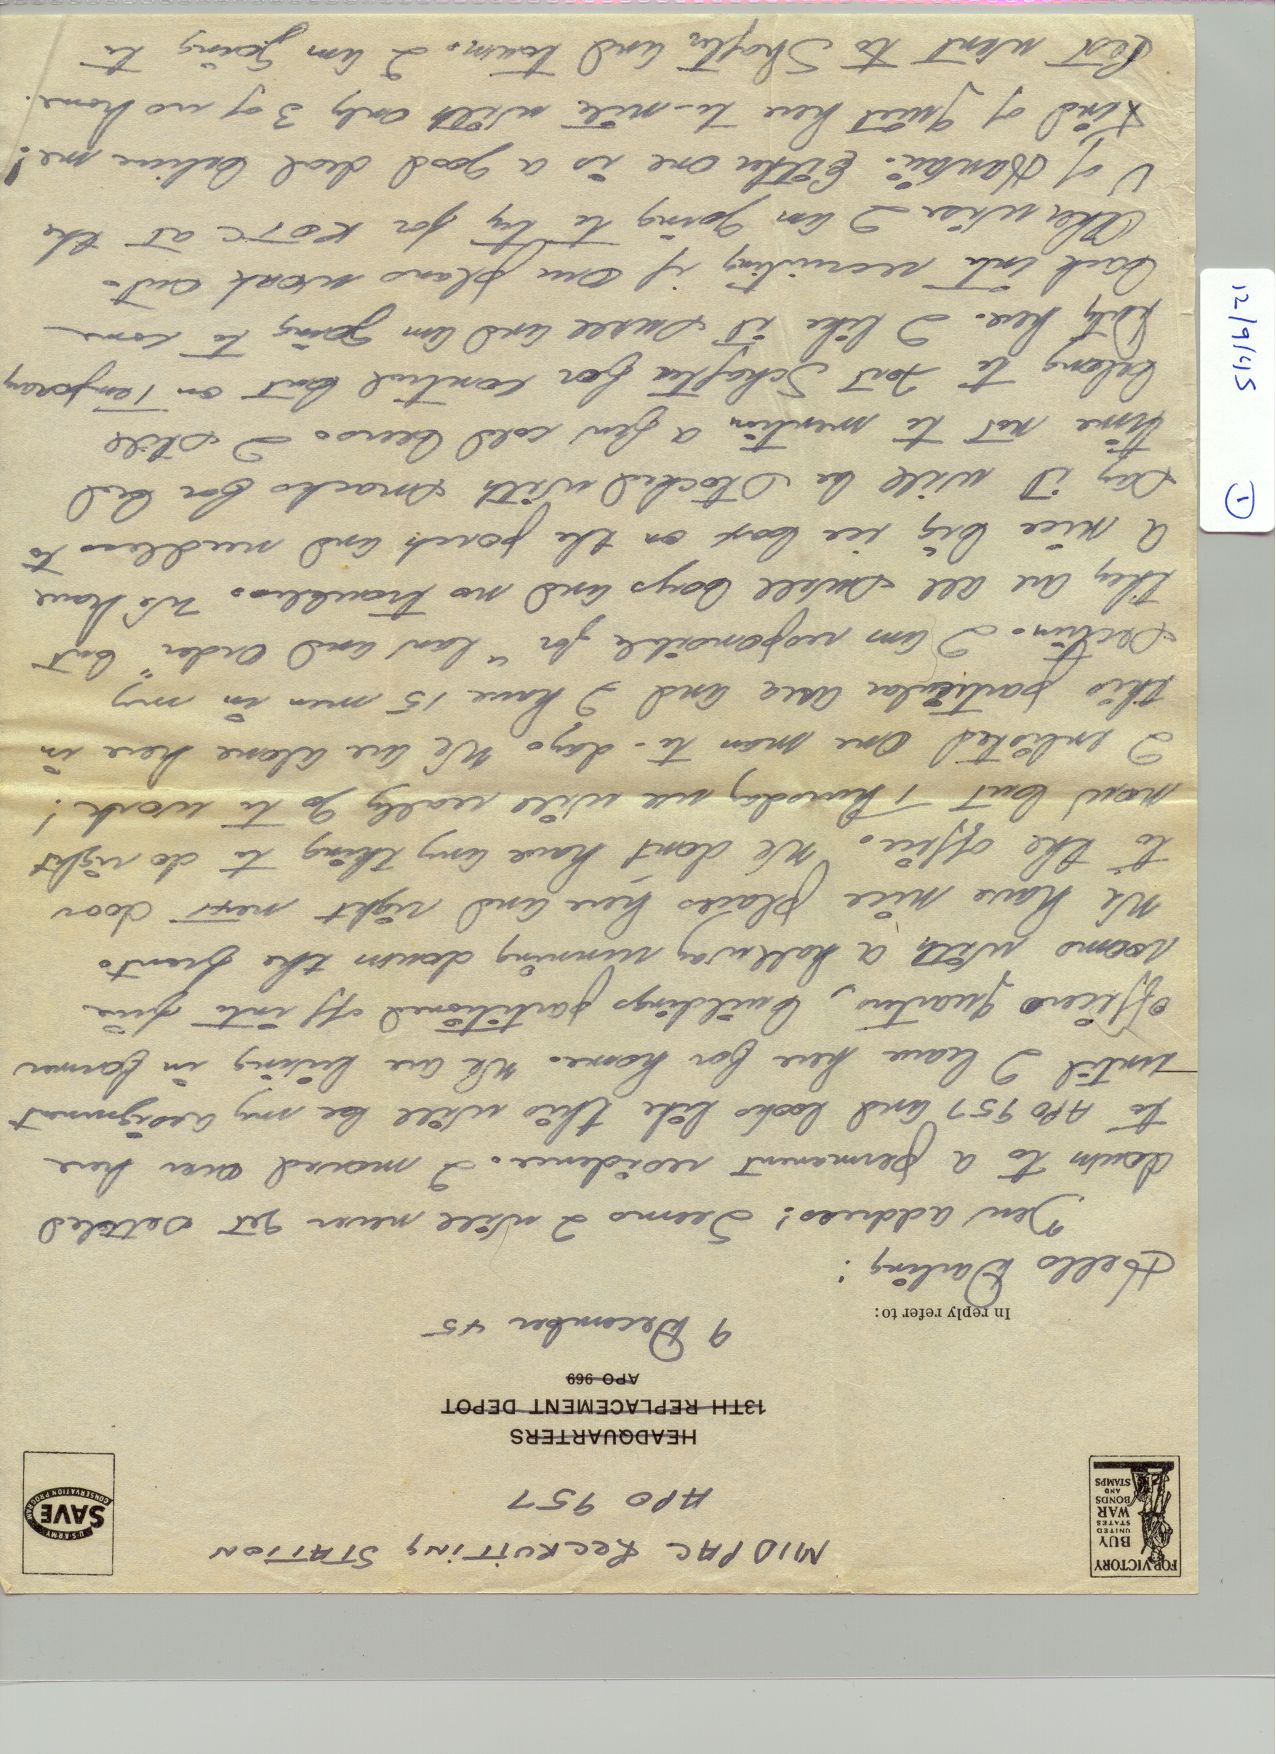 FOR VICTORY
BUY
UNITED
STATES
WAR
BONDS
AND
STAMPS
U·S·ARMY
SAVE
CONSERVATION PROGRAM
MIDPAC RECRUITING STATION
APO 957
HEADQUARTERS
13TH REPLACEMENT DEPOT
APO 969
9 December 45
In reply refer to:
Hello Darling:
New address! Seems I will never get settled
down to a permanent residence. I moved over here
to APO 957 and looks like this will be my assignment
until I leave here for home. We are living in former
officers quarters, buildings partitioned off into five
rooms with a hallway running down the front.
We have nice places here and right next door
to the office. We dont have any thing to do right
now but Thursday we will really go to work!
I enlisted one man to-day. We are alone here in
this particular area and I have 15 men in my
section. I am responsible for "law and order" but
they are all swell boys and no troubles. We have
a nice big ice box on the porch and needless to
say it will be stocked with snacks for bed
time not to mention a few cold beers. I still
belong to Fort Schafter for control but on Temporary
Duty here. I like it swell and am going to come
back into recruiting if our plans work out.
Otherwise I am going to try for ROTC at the
U of Hawaii. Either one is a good deal believe me!
Kind of quiet here to-nite with only 3 of us home.
Rest went to Shafter and town. I am going to
12/9/45
1